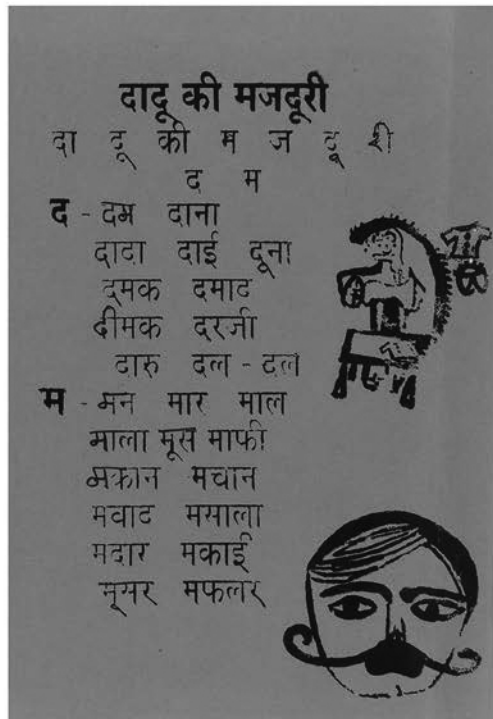 दादू की मजदूरी
दा दू की म ज दू री
द म
द - दम दाना
दादा दाई दूना
दमक दमाद
दीमक दरजी
दारु दल - दल
म - मन मार माल
माला मूस माफी
मकान मचान
मवाद मसाला
मदार मकाई
मूसर मफलर